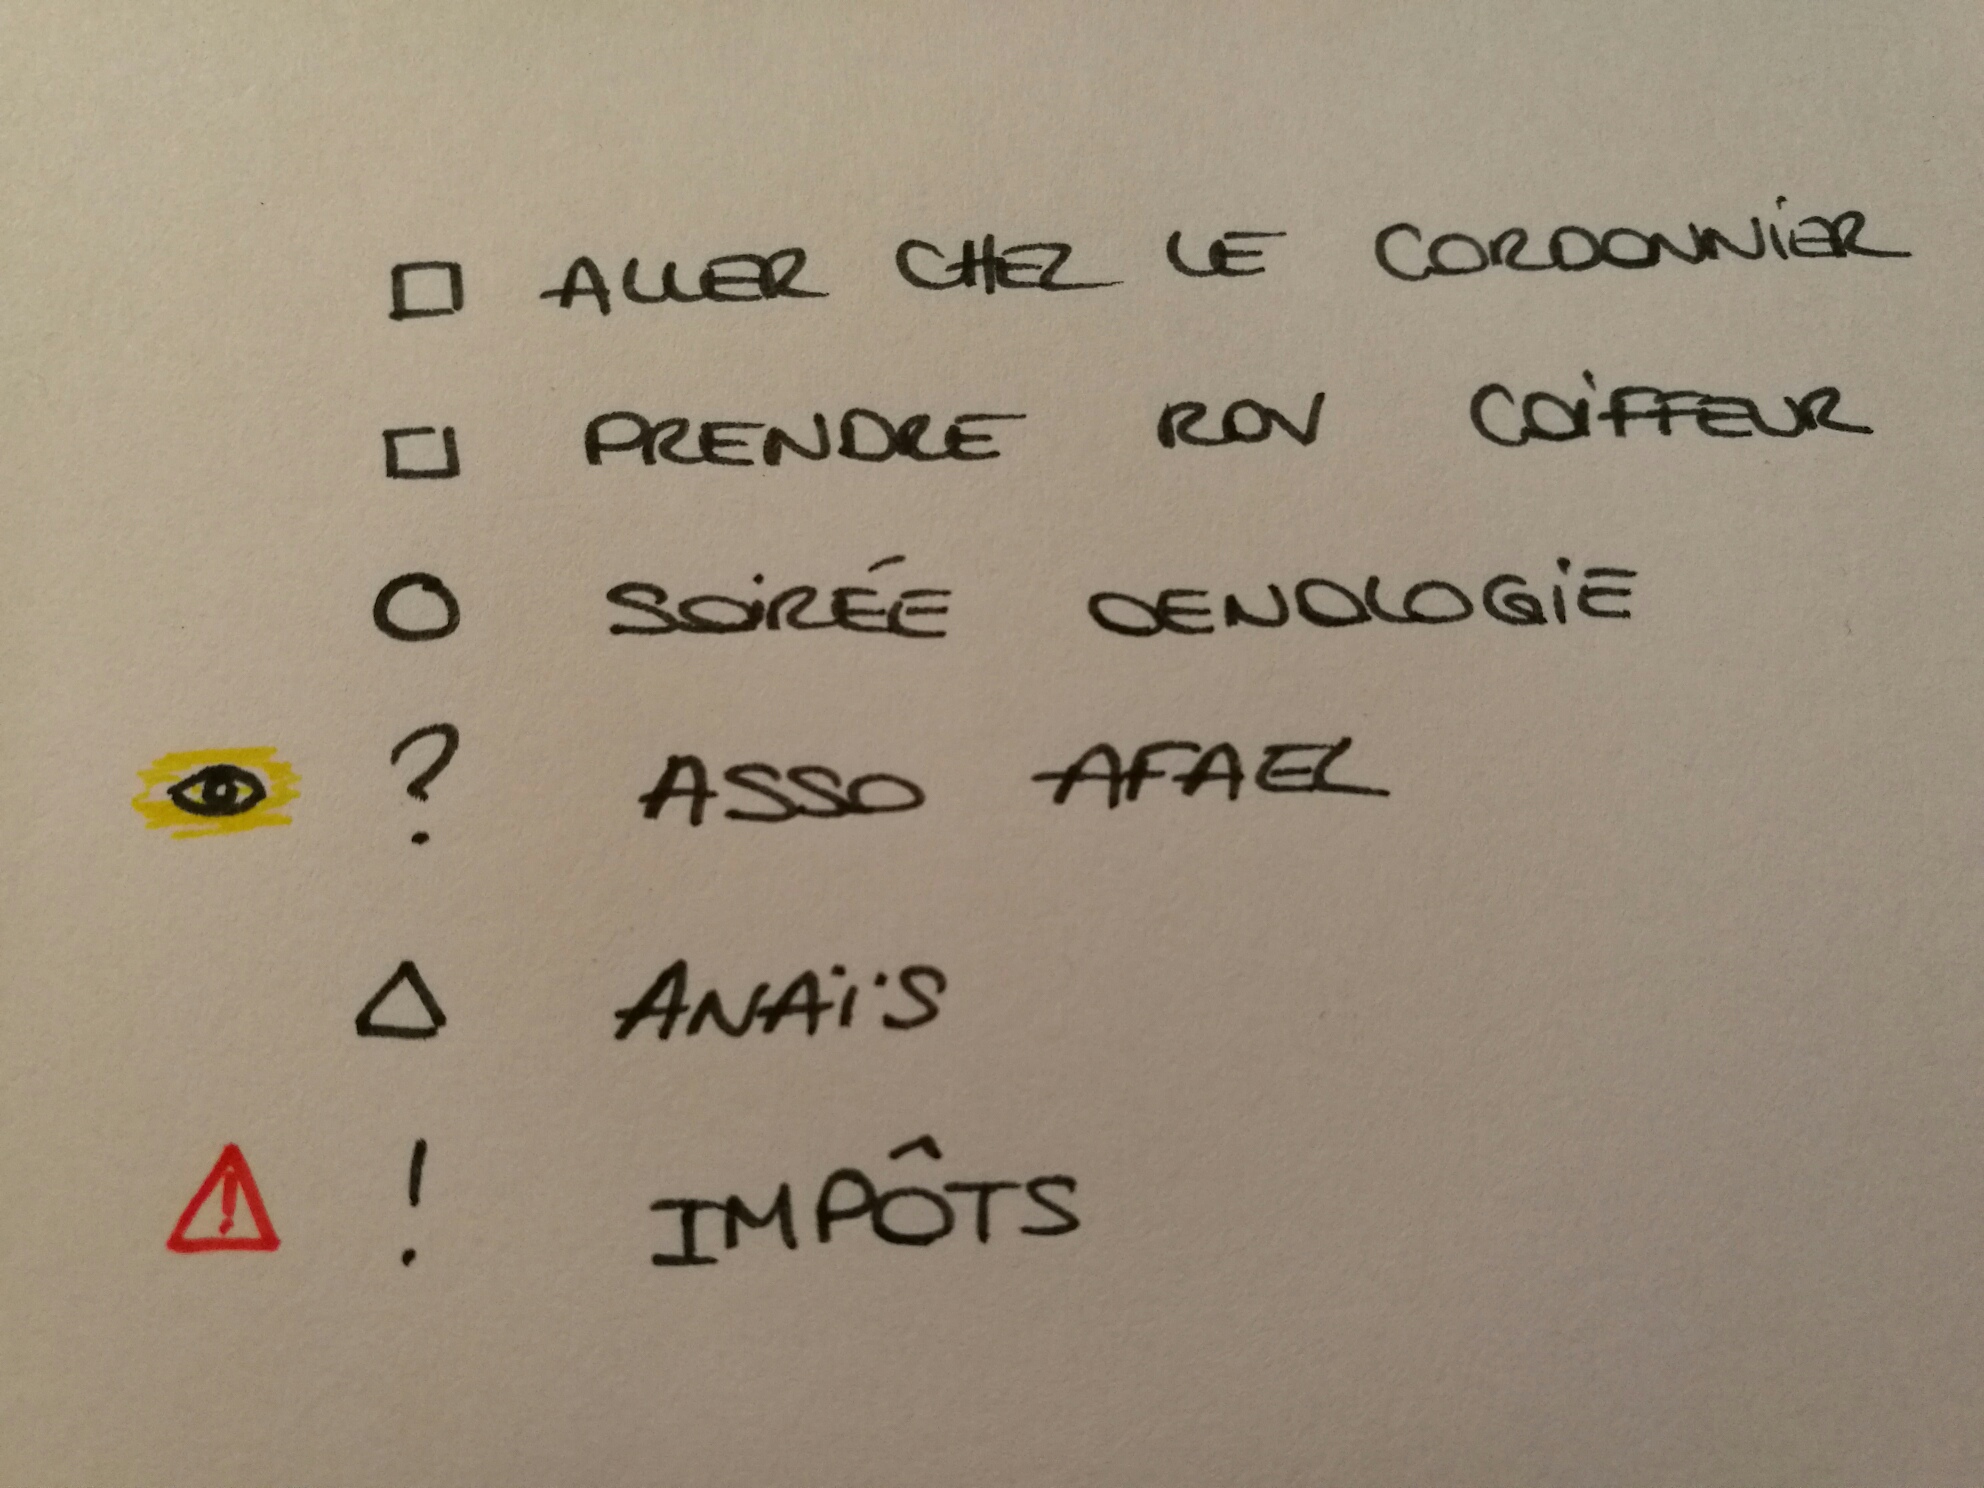 □ ALLER CHEZ LE CORDONNIER
□ PRENDRE RDV COIFFEUR
○ SOIRÉE OENOLOGIE
? ASSO AFAEL
△ ANAÏS
⚠ ! IMPÔTS